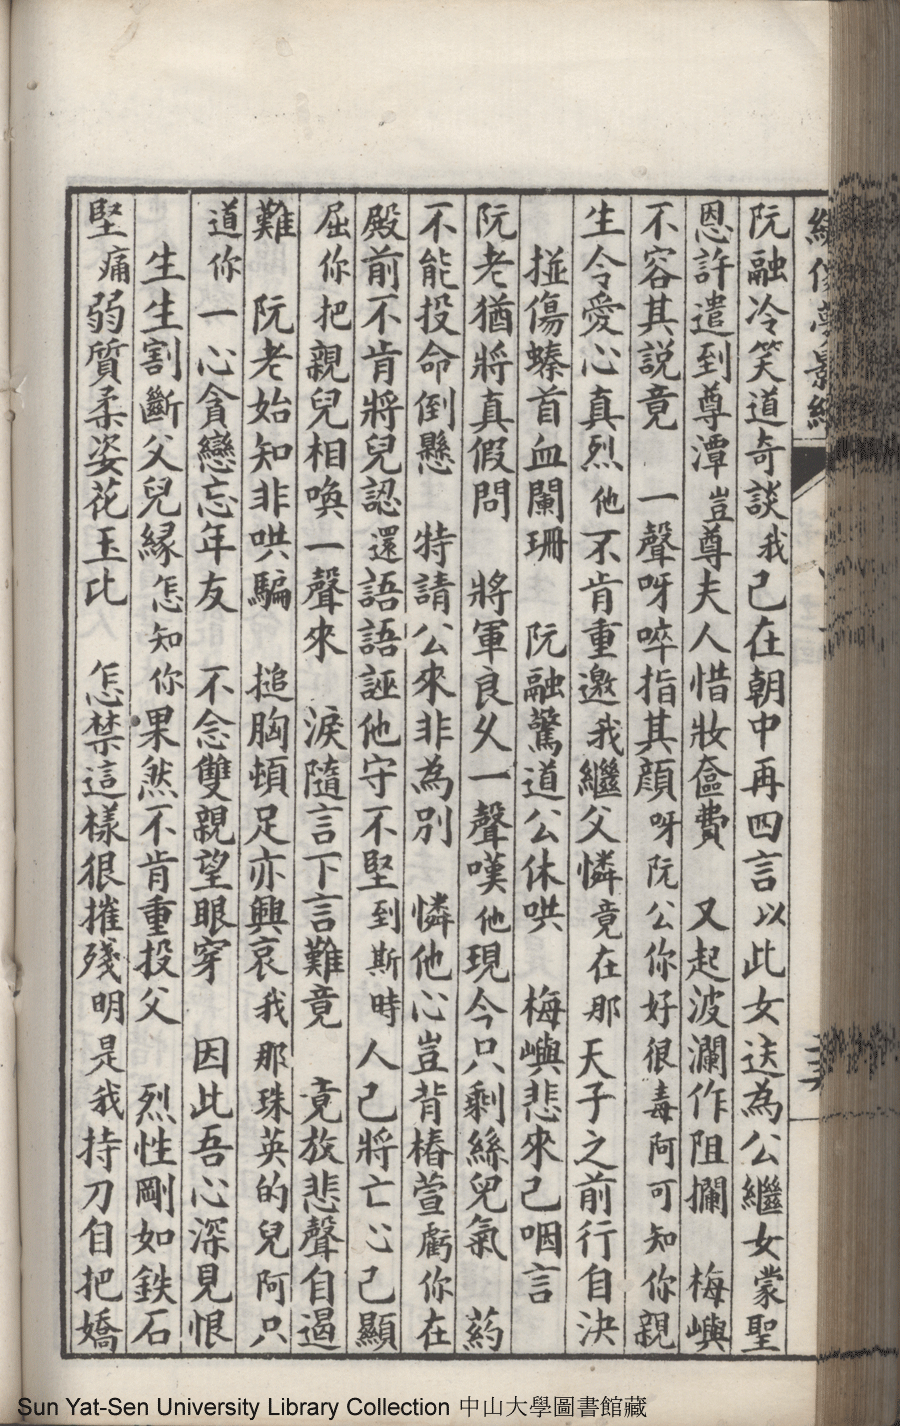 阮融冷笑道奇談我己在朝中再四言以此女送為公繼女蒙聖
恩許遣到尊潭豈尊夫人惜妝奩費　又起波瀾作阻攔　梅嶼
不容其説竟　一聲呀啐指其顔呀阮公你好很毒阿可知你親
生令愛心真烈他不肯重邀我繼父憐竟在那天子之前行自決
　掽傷螓首血闌珊　阮融驚道公休哄　梅嶼悲來己咽言
阮老猶將真假問　將軍良久一聲嘆他現今只剩絲兒氣　葯
不能投命倒懸　特請公來非為別　憐他心豈背椿萱虧你在
殿前不肯將兒認還語語誣他守不堅到斯時人己將亡心己顯
屈你把親兒相喚一聲來　淚隨言下言難竟　竟放悲聲自遏
難　阮老始知非哄騙　搥胸頓足亦興哀我那珠英的兒阿只
道你一心貪戀忘年友　不念雙親望眼穿　因此吾心深見恨
　生生割斷父兒緣怎知你果然不肯重投父　烈性剛如鉄石
堅痛弱質柔姿花玉比　怎禁這樣很摧殘明是我持刀自把嬌
Sun Yat-Sen University Library Collection 中山大學圖書館藏